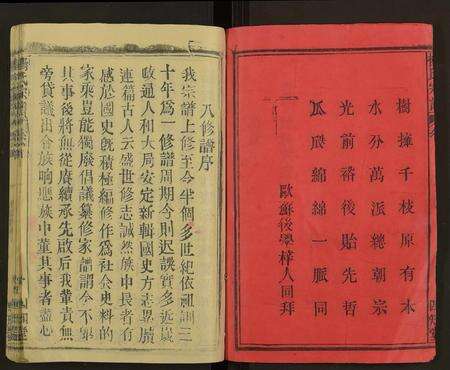 樹攡千枝原有本
水分萬派總朝宗
光前裕後貽先哲
瓜瓞綿綿一脈同
歐蘇後學梓人同拜
八修譜序
我宗譜上修至今半個多世紀依祖訓三
十年爲一修譜周期今則迟誤實多近歲
政通人和大局安定新輯國史方志畢牘
連篇古人云盛世修志誠然族中長者有
感於國史旣積極編修作爲社會史料的
家乘豈能獨廢倡議纂修家譜謂今不罷
其事後將無從賡續承先啟后我輩責無
旁貸議出合族响應族中董其事者盡心